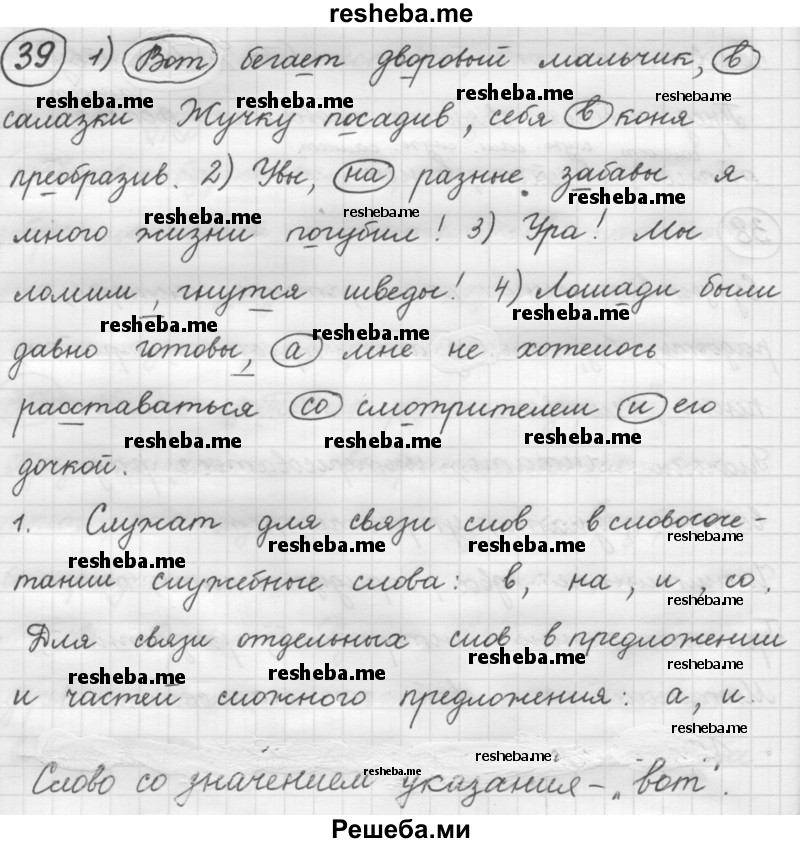 resheba.me
39 1) Вот бегает дворовый мальчик, в
resheba.me resheba.me resheba.me resheba.me
салазки Жучку посадив, себя в коня
преобразив. 2) Увы, на разные забавы я
resheba.me resheba.me resheba.me
много жизни погубил! 3) Ура! Мы
ломим, гнутся шведы! 4) Лошади были
resheba.me resheba.me resheba.me
давно готовы, а мне не хотелось
расставаться со смотрителем и его
resheba.me resheba.me resheba.me
дочкой.
1. Служат для связи слов в словосоче-
resheba.me resheba.me resheba.me resheba.me
тании служебные слова: в, на, и, со.
resheba.me
Для связи отдельных слов в предложении
resheba.me resheba.me resheba.me
и частей сложного предложения: а, и.
resheba.me
resheba.me resheba.me
Слово со значением указания - "вот".
Решеба.ми